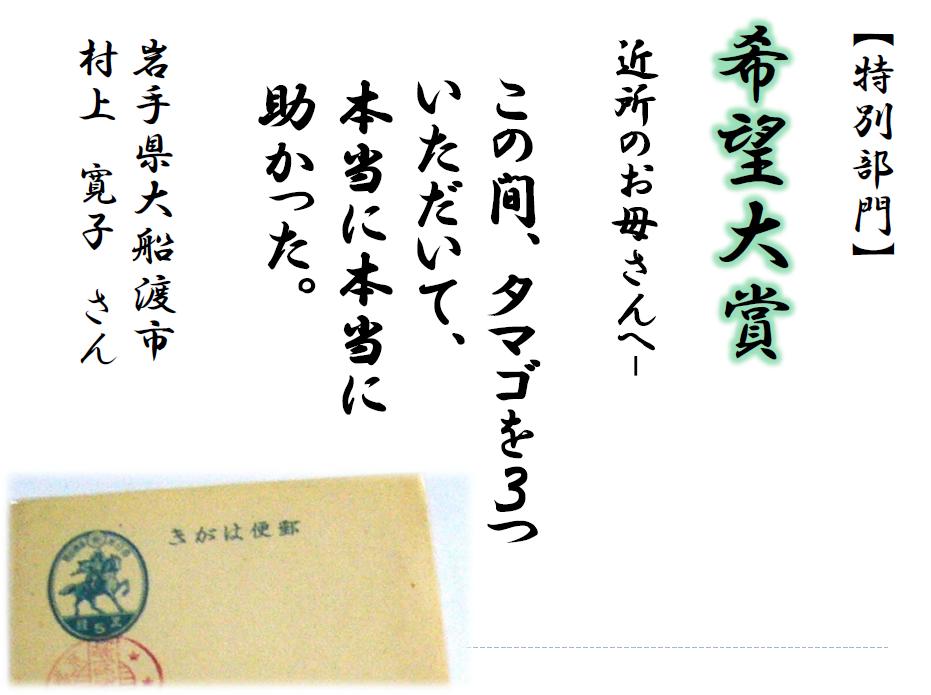 【特別部門】
希望大賞
近所のお母さんへ―
この間、タマゴを3つ
いただいて、
本当に本当に
助かった。
岩手県大船渡市
村上 寛子 さん
きがは便郵